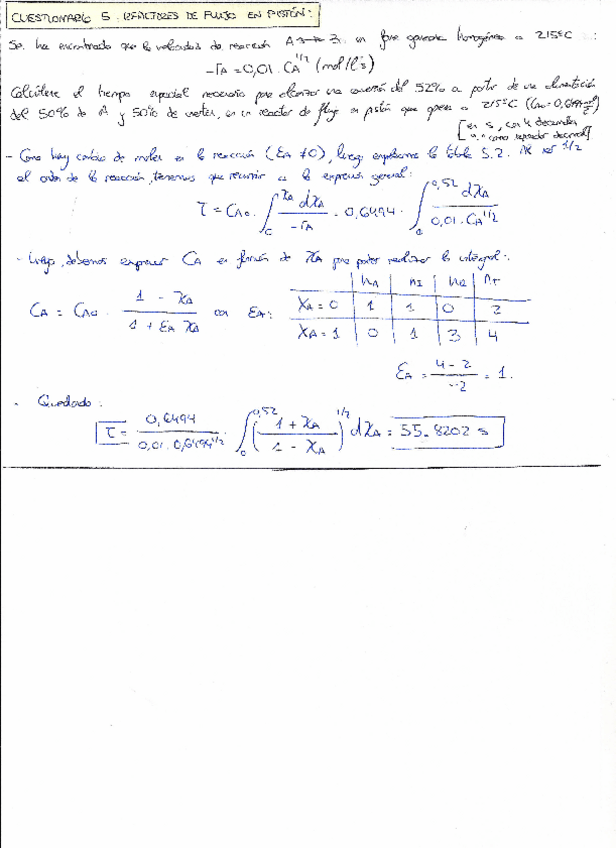 CUESTIONARIO 5. REACTORES DE FLUJO EN PISTÓN:
Se ha encontrado que la velocidad de reacción A → 3 en fase gaseosa homogénea a 215ºC :
-rA = 0,01 . CA^1/2 (mol/l·s)
Calcúlese el tiempo espacial necesario para alcanzar una conversión del 52% a partir de una alimentación
del 50% de A y 50% de inertes, en un reactor de flujo en pistón que opera a 215ºC (CA0 = 0,6494
[en s, con 4 decimales
como separador decimal]
- Como hay cambio de moles en la reacción (εA ≠ 0), luego empleamos la tabla 5.2. Al ser 1/2
el orden de la reacción, tenemos que recurrir a la expresión general:
τ = CA0 · ∫0^XA dXA / -rA = 0,6494 · ∫0^0,52 dXA / 0,01·CA^1/2
- Luego, debemos expresar CA en función de XA para poder realizar la integral:
CA = CA0 · (1 - XA) / (1 + εA XA) con εA:
nA nI nR nT
XA = 0 1 1 0 2
XA = 1 0 1 3 4
εA = (4 - 2) / 2 = 1.
- Quedando:
τ = 0,6494 / 0,01·0,6494^1/2 · ∫0^0,52 ((1 + XA) / (1 - XA))^1/2 dXA = 55.8202 s